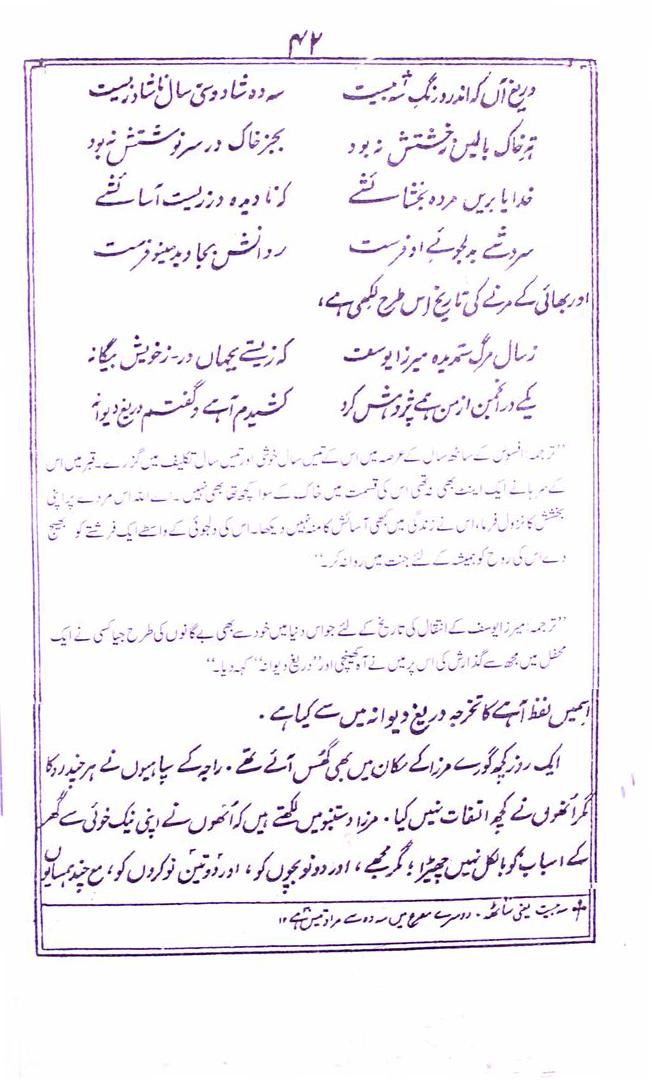 ۴۲
دریغ آں کہ اندر درنگِ سہ بیست سہ دہ شاد و سی سال ناشاد زیست
تہِ خاک بالیں ز خشتش نہ بود بجز خاک در سرنوشتش نہ بود
خدایا بریں مردہ بخشائشے کہ نادیدہ در زیست آسائشے
سروشے بدلجوئے او فرست روانش بجاوید مینو فرست
اور بھائی کے مرنے کی تاریخ اِس طرح لکھی ہے،
ز سال مرگِ ستمدیدہ میرزا یوسف کہ زیستے بجہاں در ز خویش بیگانہ
یکے در انجمن از من ہمے پژوہش کرد کشیدم آہے و گفتم دریغ دیوانہ
"ترجمہ: افسوس کے ساٹھ سال کے عرصہ میں اس کے تیس سال خوشی اور تیس سال تکلیف میں گزرے۔ قبر میں اس
کے سرہانے ایک اینٹ بھی نہ تھی اس کی قسمت میں خاک کے سوا کچھ تھا بھی نہیں۔ اے اللہ اس مردے پر اپنی
بخشش کا نزول فرما، اس نے زندگی میں کبھی آسائش کا منہ نہیں دیکھا۔ اس کی دلجوئی کے واسطے ایک فرشتے کو بھیج
دے اس کی روح کو ہمیشہ کے لئے جنت میں روانہ کر۔"
"ترجمہ: میرزا یوسف کے انتقال کی تاریخ کے لئے جو اس دنیا میں خود سے بھی بے گانوں کی طرح جیا کسی نے ایک
محفل میں مجھ سے گذارش کی اس پر میں نے آہ کھینچی اور "دریغ دیوانہ" کہہ دیا۔"
اِسمیں لفظ آہے کا تخرجہ دریغ دیوانہ میں سے کیا ہے۔
ایک روز کچھ گورے مرزا کے مکان میں بھی گھُس آئے تھے۔ راجہ کے سپاہیوں نے ہر چند روکا
مگر اُنھوں نے کچھ التفات نہیں کیا۔ مرزا دستنبو میں لکھتے ہیں کہ اُنھوں نے اپنی نیک خوئی سے گھر
کے اسباب کو بالکل نہیں چھیڑا؛ مگر مجھے، اور دونو بچوں کو، اور دو تین نوکروں کو، مع چند ہمسایوں
سہ بیست یعنی ساٹھ۔ دوسرے مصرع میں سہ دہ سے مراد تیس ہے ۱۲